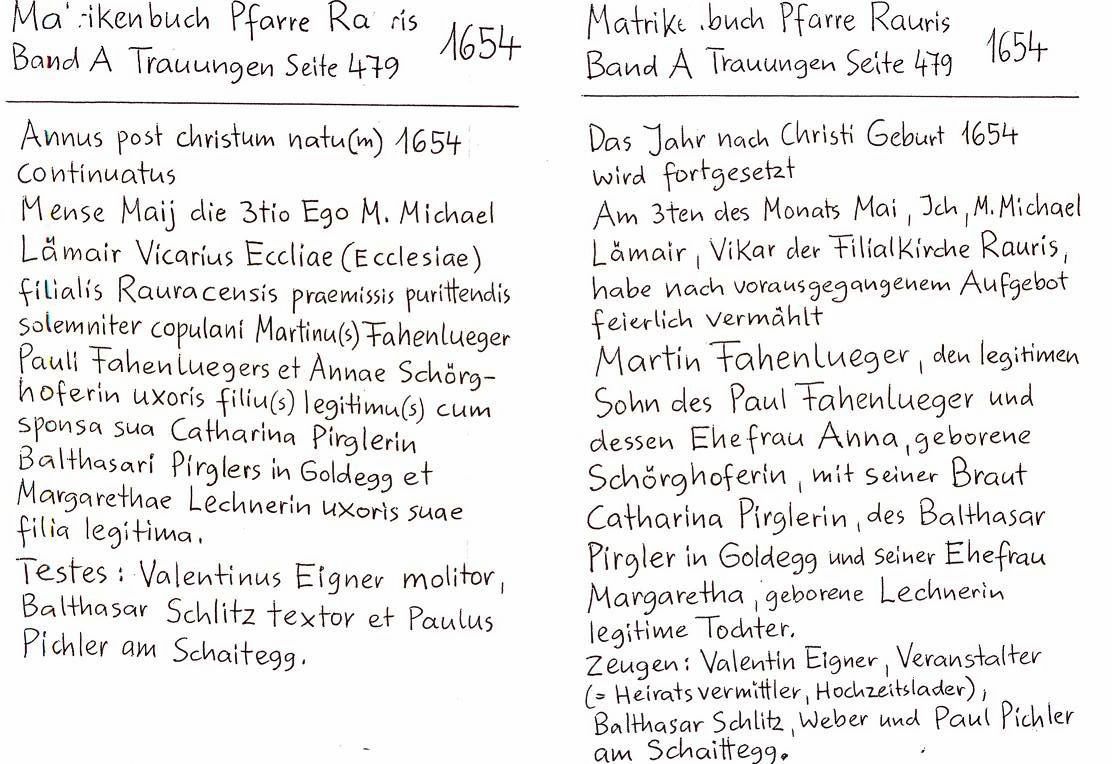 Ma ikenbuch Pfarre Ra ris 1654
Band A Trauungen Seite 479
Annus post christum natu(m) 1654
continuatus
Mense Maij die 3tio Ego M. Michael
Låmair Vicarius Eccliae (Ecclesiae)
filialis Rauracensis praemissis purittendis
solemniter copulani Martinu(s) Fahenlueger
Pauli Fahenluegers et Annae Schörg-
hoferin uxoris filiu(s) legitimu(s) cum
sponsa sua Catharina Pirglerin
Balthasari Pirglers in Goldegg et
Margarethae Lechnerin uxoris suae
filia legitima.
Testes: Valentinus Eigner molitor,
Balthasar Schlitz textor et Paulus
Pichler am Schaitegg.
Matrike buch Pfarre Rauris 1654
Band A Trauungen Seite 479
Das Jahr nach Christi Geburt 1654
wird fortgesetzt
Am 3ten des Monats Mai, Ich, M. Michael
Låmair, Vikar der Filialkirche Rauris,
habe nach vorausgegangenem Aufgebot
feierlich vermählt
Martin Fahenlueger, den legitimen
Sohn des Paul Fahenlueger und
dessen Ehefrau Anna, geborene
Schörghoferin, mit seiner Braut
Catharina Pirglerin, des Balthasar
Pirgler in Goldegg und seiner Ehefrau
Margaretha, geborene Lechnerin
legitime Tochter.
Zeugen: Valentin Eigner, Veranstalter
(= Heiratsvermittler, Hochzeitslader),
Balthasar Schlitz, Weber und Paul Pichler
am Schaittegg.